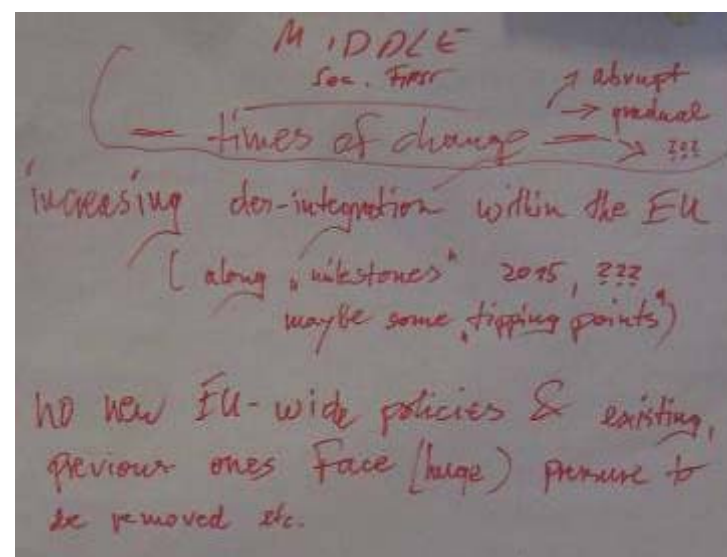 MIDDLE
Sec. FIRST
— times of change — ↗ abrupt
→ gradual
↘ ???
increasing des-integration within the EU
(along „milestones" 2015, ???
maybe some „tipping points")
no new EU-wide policies & existing,
previous ones Face (huge) pressure to
be removed etc.